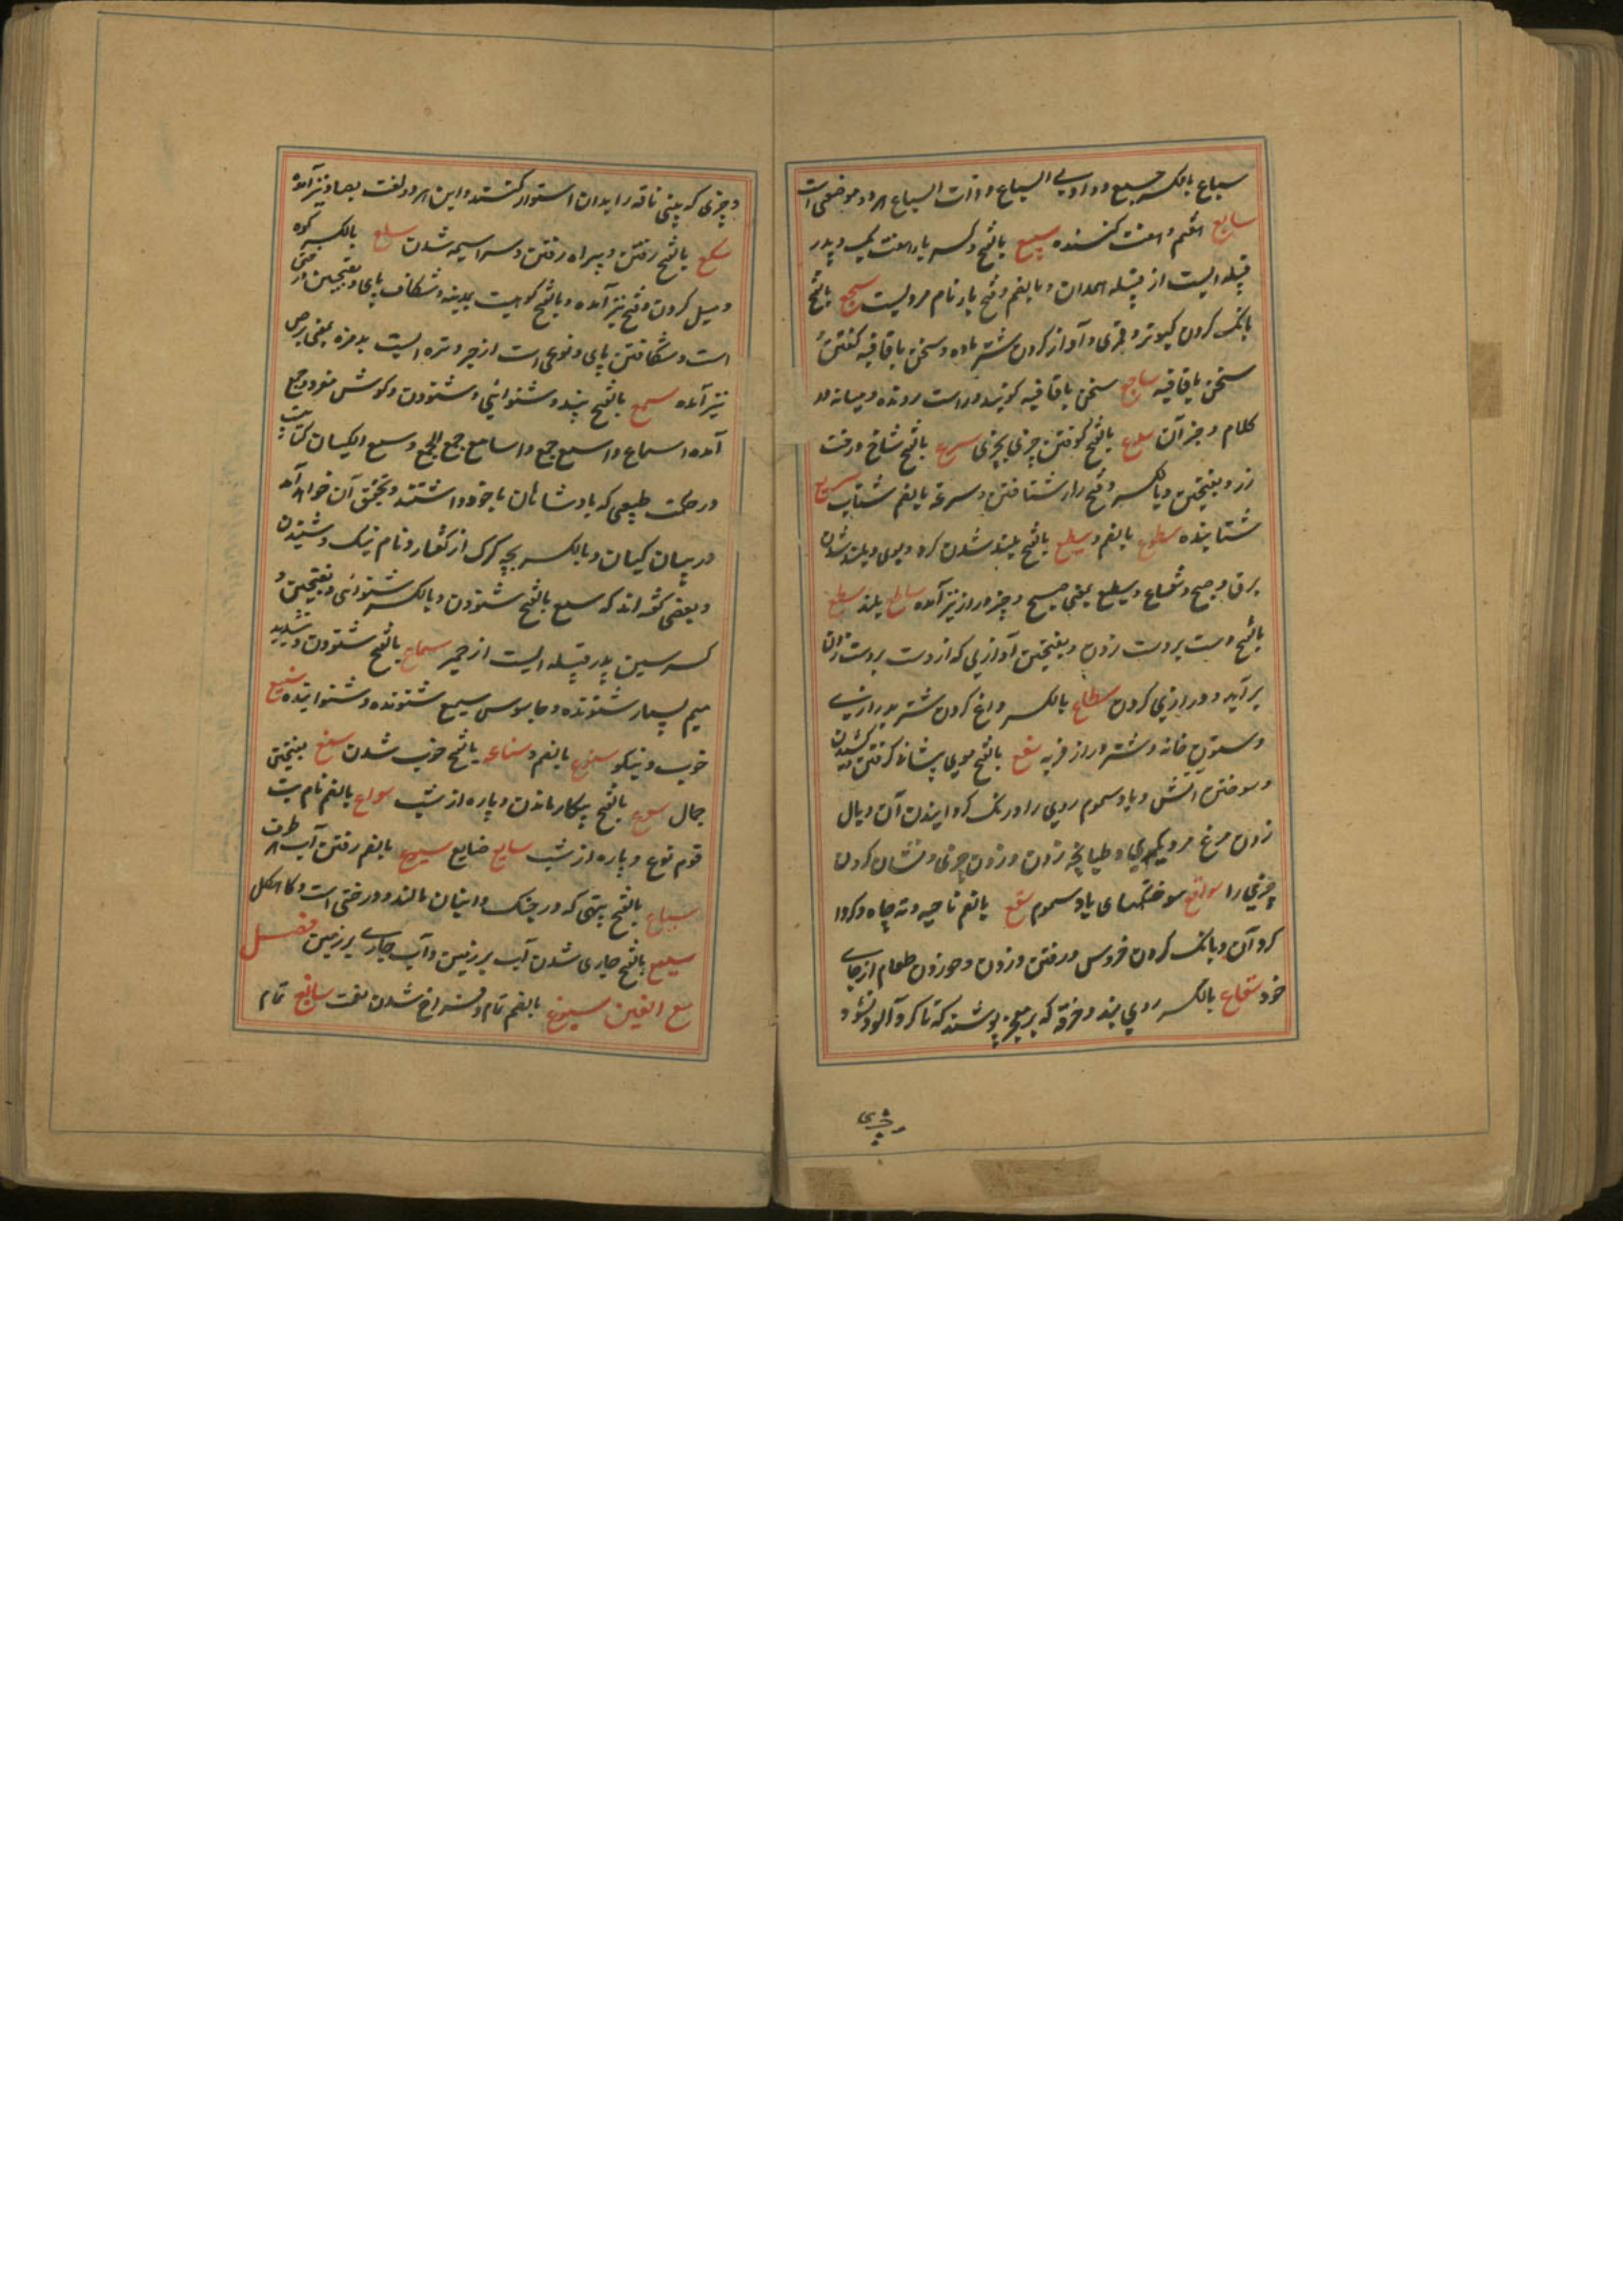 سباع بالکسر جمع و وادی السباع و ذات السباع هر دو موضعی است
سابع هفتم و هفت کننده سبیع بالفتح و کسر با هفت یک و پدر
قبیله ایست از قبیله همدان و بالضم و فتح با نام مردیست سجع بالفتح
بانگ کردن کبوتر و قمری و آواز کردن شتر ماده و سخن باقافیه گفتن و
سخن باقافیه ساجع سخن باقافیه گوینده و راست رونده و میانه در
کلام و جز آن سدع بالفتح کوفتن چیزی بچیزی سرع بالفتح شاخ درخت
رز و بفتحتین و بالکسر و فتح را شتافتن و سرعة بالضم شتاب سریع
شتابنده سطوع بالضم و سطع بالفتح بلند شدن گرد و بوی و بلند شدن
برق و صبح و شعاع و سطیع بمعنی صبح و چیز دراز نیز آمده ساطع بلند سطع
بالفتح دست بر دست زدن و بفتحتین آوازی که از دست بر دست زدن
بر آید و درازی گردن سطاع بالکسر داغ گردن شتر بدرازی
و ستون خانه و شتر دراز فربه سفع بالفتح موی پیشانی گرفتن و کشیدن
و سوختن آتش و باد سموم روی را و رنگ گردانیدن آن و بال
زدن مرغ مر دیگری و طپانچه زدن و زدن چیزی و نشان کردن
چیزی را سوافع سوختهای باد سموم سقع بالضم ناحیه و ته چاه و گردا
گرد آن و بانگ کردن خروس و رفتن و زدن و خوردن طعام از جای
خود سقاع بالکسر روی بند و خرقه که بر معجر پوشند که تا گرد آلود نشود و
و چیزی
و چیزی که بینی ناقه را بدان استوار کنند و این هر دو لغت بصاد نیز آمده
سکع بالفتح رفتن و بیراه رفتن و سراسیمه شدن سلع بالکسر کوه
و میل کردن و فتح نیز آمده و بالفتح کوهیست بمدینه و شکاف پای و بفتحتین
است و شکافتن پای و نوعی است از صبر و تره ایست بدمزه بمعنی برص
نیز آمده سمع بالفتح پند و شنوانی و شنودن و گوش مفرد و جمع
آمده اسماع و اسمع جمع و اسامع جمع الجمع و سمع الکیان کتابیست
در حکمت طبیعی که بادشاهان با خود داشتند و تحقیق آن خواهد آمد
در بیان کیان و بالکسر بچه گرگ از کفتار و نام نیک و شنیدن
و بعضی گفته اند که سمع بالفتح شنودن و بالکسر شنوانی و بفتحتین و
کسر سین پدر قبیله ایست از حمیر سماع بالفتح شنودن و بتشدید
میم بسیار شنونده و جاسوس سمیع شنونده و شنواننده سنیع
خوب و نیکو سنوع بالضم و سناعه بالفتح خوب شدن سنع بفتحتین
جمال سوع بالفتح بیکار ماندن و پاره از شب سواع بالضم نام بت
قوم نوح و پاره از شب سایع ضایع سیوع بالضم رفتن آب هر طرف
سیاع بالفتح پیهی که در چنگ و انبان مالند و درختی است و کاهگل
سیع بالفتح جاری شدن آب بر زمین و آب جاری بر زمین فصل
مع الغین سبوغ بالضم تمام و فراخ شدن نعمت سابغ تمام